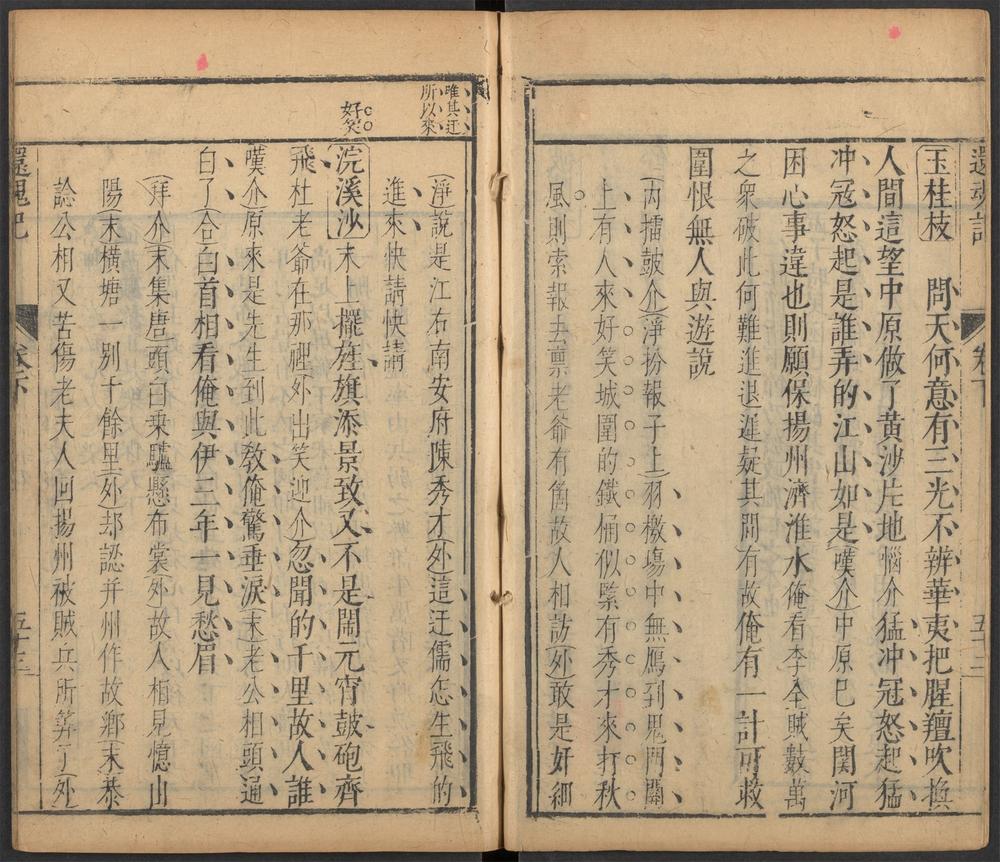 玉桂枝　問天何意有三光不辨華夷把腥羶吹換
人間這望中原做了黃沙片地惱介猛冲冠怒起猛
冲冠怒起是誰弄的江山如是嘆介中原已矣関河
困心事違也則願保揚州濟淮水俺看李全賊數萬
之衆破此何難進退遲疑其間有故俺有一計可救
圍恨無人與遊說
內擂鼓介淨扮報子上羽檄塲中無鴈到鬼門關
上有人來好笑城圍的鐵桶似緊有秀才來打秋
風則索報去禀老爺有箇故人相訪外敢是好細
還魂記
卷下
五十三
唯其迂
所以來
好笑
淨說是江右南安府陳秀才外這迂儒怎生飛的
進來快請快請
浣溪沙末上擺旌旗添景致又不是鬧元宵鼓砲齊
飛杜老爺在那裡外出笑迎介忽聞的千里故人誰
嘆介原來是先生到此敎俺驚垂淚末老公相頭通
白了合白首相看俺與伊三年一見愁眉
拜介末集唐頭白乗驢懸布裳外故人相見憶山
陽末橫塘一別千餘里外却認并州作故鄉末恭
諗公相又苦傷老夫人回揚州被賊兵所筭了外
還魂記
卷下
五十三